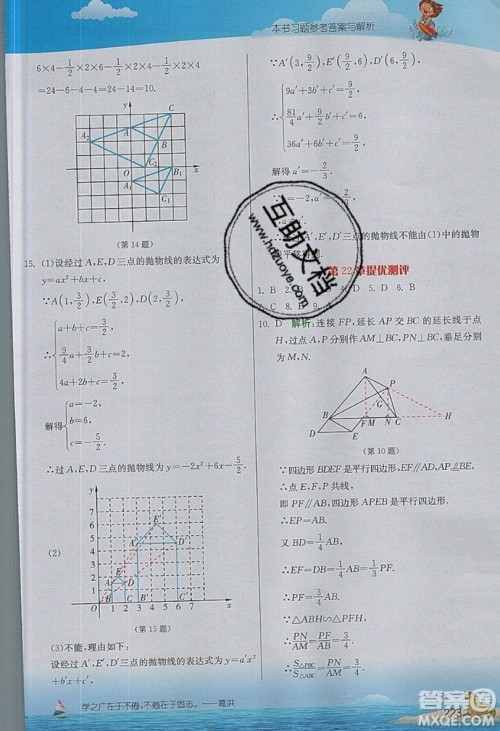 本书习题参考答案与解析
6×4-1/2×2×6-1/2×2×4-1/2×2×4
=24-6-4-4=24-14=10.
(第14题)
15. (1)设经过A,E,D三点的抛物线的表达式为
y=ax²+bx+c,
∵A(1,3/2),E(3/2,2),D(2,3/2),
∴{a+b+c=3/2,
9/4a+3/2b+c=2,
4a+2b+c=3/2.
解得{a=-2,
b=6,
c=-5/2.
∴过A,E,D三点的抛物线为y=-2x²+6x-5/2.
(2)
(第15题)
(3)不能,理由如下:
设经过A′,E′,D′三点的抛物线的表达式为y=
a′x²+b′x+c′,
∵A′(3,9/2),E′(9/2,6),D′(6,9/2),
∴{9a′+3b′+c′=9/2,
81/4a′+9/2b′+c′=6,
36a′+6b′+c′=9/2.
解得a′=-2/3.
∵a=-2,a′=-2/3,
三点的抛物线不能由(1)中的抛物
第22章提优测评
1. B 2. 4. D 5. B
6. C 8. B 9. A
10. D 解析:连接FP,延长AP交BC的延长线于点
H,过点A,P分别作AM⊥BC,PN⊥BC,垂足分别
为M,N.
(第10题)
∵四边形BDEF是平行四边形,EF∥AB,
∴点E,F,P共线,
即PE∥AB,四边形APEB是平行四边形.
∴EP=AB.
又BD=1/4AB,
∴EF=DB=1/4AB.
∴PF=3/4AB.
∵△ABH∽△PFH,
∴PN/AM=PF/AB=3/4.
∴S△PBC/S△ABC=PN/AM=3/4.
学之广在于不倦,不倦在于固志。——葛洪
互助文档
www.hdzuoye.com
答案圈
MXQE.COM